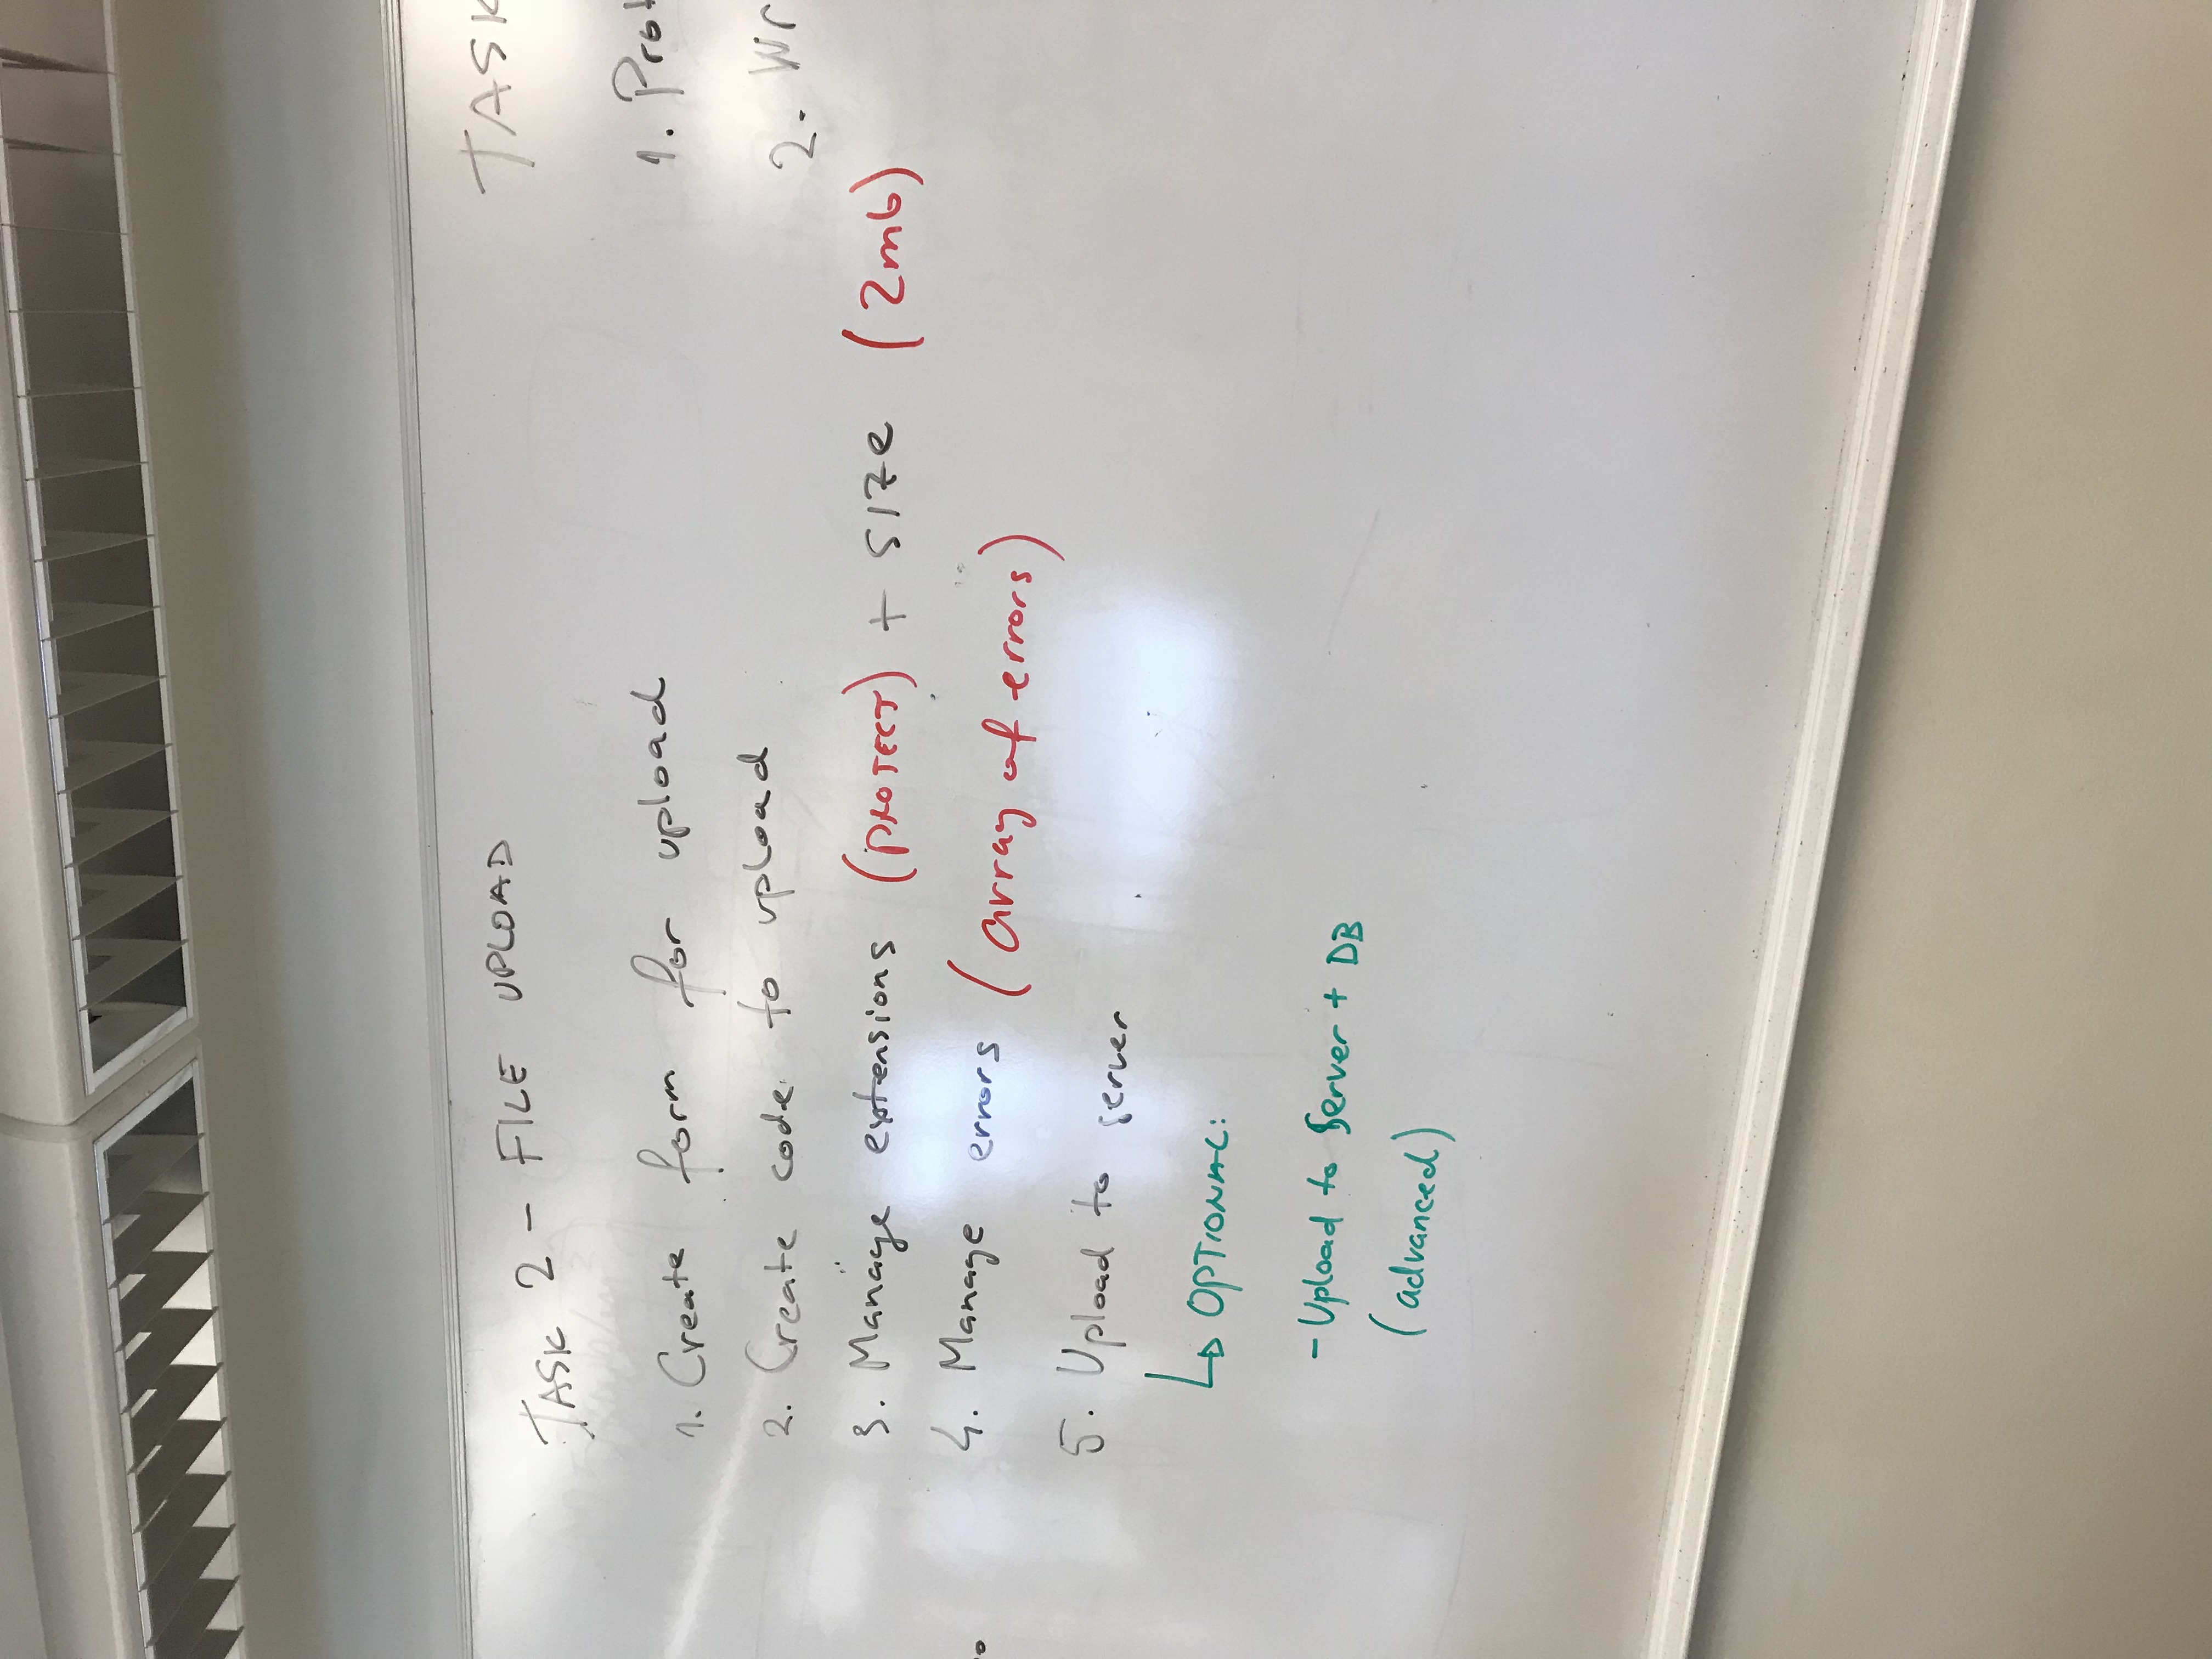 TASK 2 - FILE UPLOAD
1. Create form for upload
2. Create code to upload
3. Manage extensions (PROTECT) + SIZE (2mb)
4. Manage errors (array of errors)
5. Upload to server
↳ OPTIONAL:
- Upload to Server + DB
(advanced)
TASK
1. Prot
2. Wr